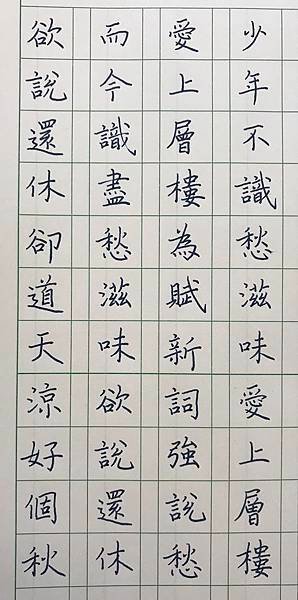 少年不識愁滋味愛上層樓
愛上層樓為賦新詞強說愁
而今識盡愁滋味欲說還休
欲說還休卻道天涼好個秋